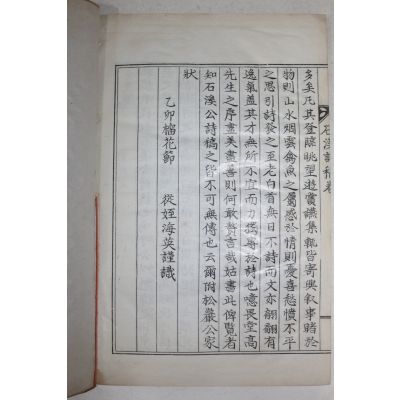 石溪詩稿 卷
多矣凡其登臨眺望遊賞讌集輒皆寄興叙事睹於
物則山水烟雲禽魚之屬感於情則憂喜愁憤不平
之思引詩發之至老白首無日不詩而文亦翩翩有
逸氣蓋其才無所不宜而力獨專於詩也噫畏堂高
先生之序盡美盡善則何敢贅言哉姑書此俾覽者
知石溪公詩稿之皆不可無傳也云爾附松巖公家
狀
乙卯榴花節 從姪海英謹識